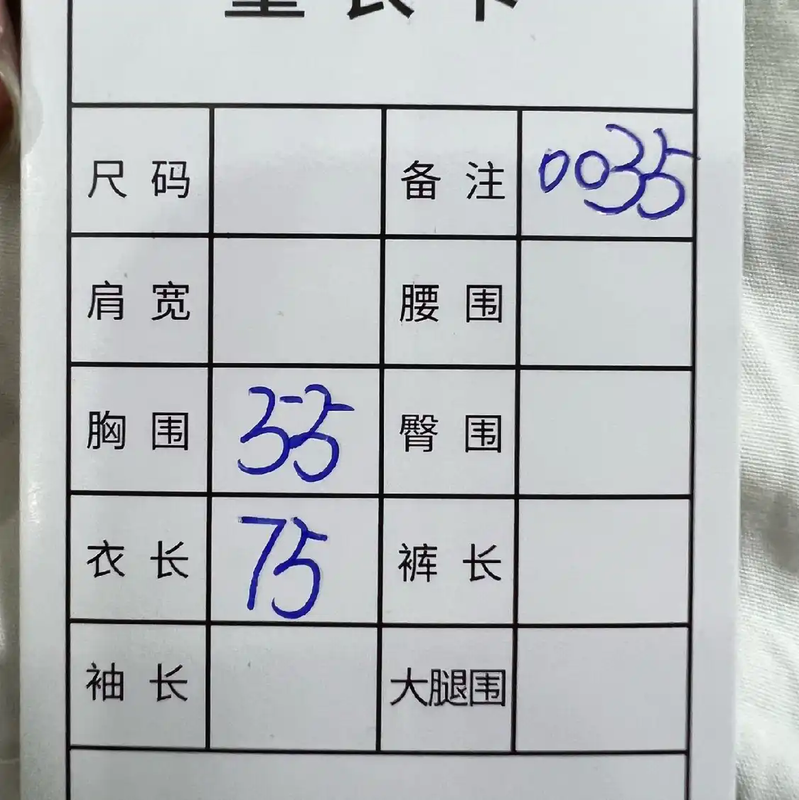 量衣卡
尺码 备注 0035
肩宽 腰围
胸围 55 臀围
衣长 75 裤长
袖长 大腿围